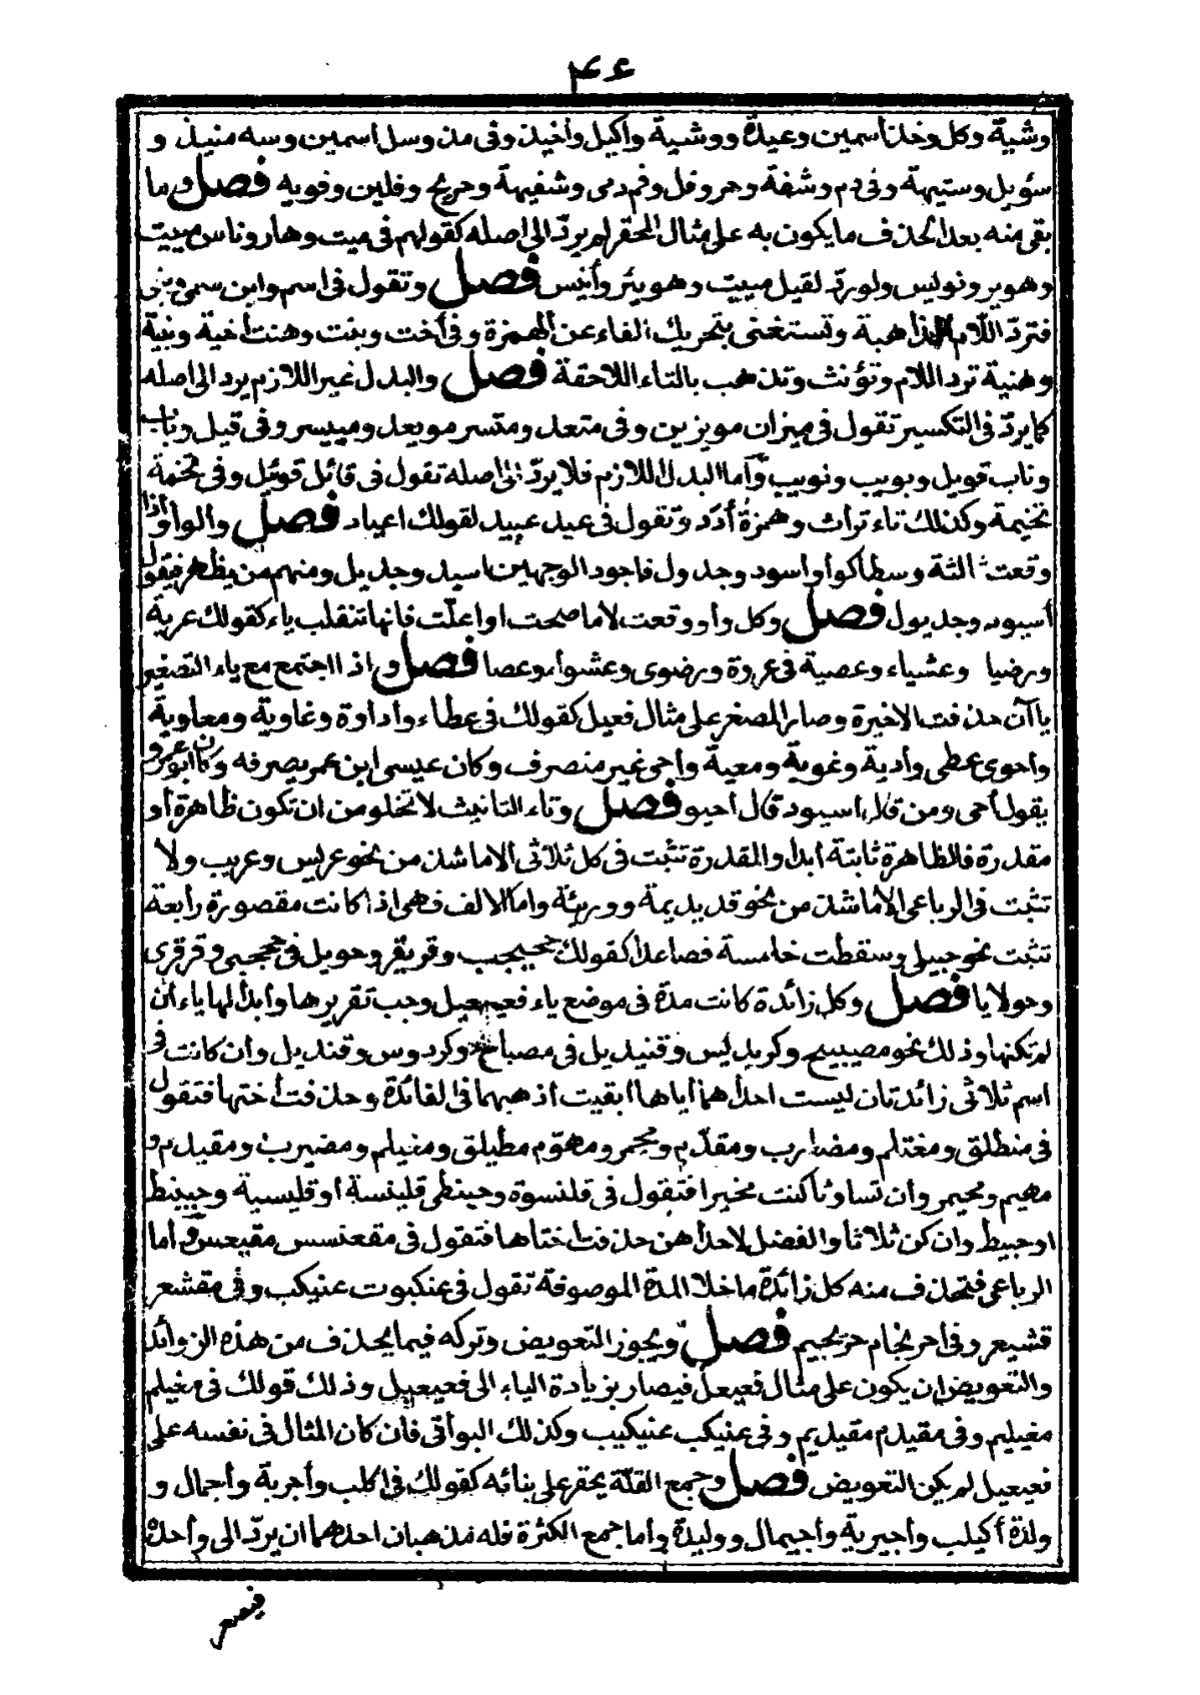 ۴۶
وشية وكل وخذ اسمين وعيدة ووشية وأكيل وأخيذ وفى مذ وسل اسمين وسه منيذ و
سؤيل وستيهة وفى دم وشفة وحر وفل وفم دمى وشفيهة وحريح وفلين وفويه فصل وما
بقى منه بعد الحذف ما يكون به على مثال المحقر لم يردّ الى اصله كقولهم فى ميت وهار وناس مييت
وهوير ونويس ولو ردّ لقيل مييت وهويئر وأنيس فصل وتقول فى اسم وابن سمى وبنى
فتردّ اللام الذاهبة وتستغنى بتحريك الفاء عن الهمزة وفى أخت وبنت وهنت أخية وبنية
وهنية ترد اللام وتؤنث وتذهب بالتاء اللاحقة فصل والبدل غير اللازم يرد الى اصله
كما يردّ فى التكسير تقول فى ميزان مويزين وفى متعد ومتسر مويعد ومييسر وفى قيل وباب
وناب قويل وبويب ونويب وأما البدل اللازم فلا يردّ الى اصله تقول فى قائل قويئل وفى تخمة
تخيمة وكذلك تاء تراث وهمزة أدد وتقول فى عيد عييد لقولك اعياد فصل والواو اذا
وقعت ثالثة وسطا كواو اسود وجدول فاجود الوجهين اسيد وجديل ومنهم من يظهر فيقول
أسيود وجديول فصل وكل واو وقعت لاما صحت او اعلّت فانها تنقلب ياء كقولك عرية
ورضيا وعشياء وعصية فى عروة ورضوى وعشواء وعصا فصل واذا اجتمع مع ياء التصغير
يا آن حذفت الاخيرة وصار المصغر على مثال فعيل كقولك فى عطاء واداوة وغاوية ومعاوية
وأحوى عطى وأدية وغوية ومعية وأحى غير منصرف وكان عيسى ابن عمر يصرفه وكان ابو عمرو
يقول أحى ومن قال اسيود قال أحيو فصل وتاء التانيث لا تخلو من ان تكون ظاهرة أو
مقدرة فالظاهرة ثابتة أبدا والمقدرة تثبت فى كل ثلاثى الا ما شذ من نحو عريس وعريب ولا
تثبت فى الرباعى الا ما شذ من نحو قديديمة ووريئة واما الالف فهى اذا كانت مقصورة رابعة
تثبت نحو حبيلى وسقطت خامسة فصاعدا كقولك جحيجب وقريقر وحويل فى جحجبى وقرقرى
وحولايا فصل وكل زائدة كانت مدة فى موضع ياء فعيعيل وجب تقريرها وابدالها ياء ان
لم تكنها وذلك نحو مصيبيح وكريديس وقنيديل فى مصباح وكردوس وقنديل وان كانت فى
اسم ثلاثى زائدتان ليست احداهما اياها ابقيت اذهبهما فى الفائدة وحذفت أختها فتقول
فى منطلق ومغتلم ومضارب ومقدّم ومحمر ومهوّم مطيلق ومغيلم ومضيرب ومقيدم و
مهيم ومحيمر وان تساوتا كنت مخيرا فتقول فى قلنسوة وحبنطى قلينسة او قليسية وحبينط
او حبيط وان كن ثلاثا والفضل لاحداهن حذفت اختاها فتقول فى مقعنسس مقيعس وأما
الرباعى فتحذف منه كل زائدة ما خلا المدة الموصوفة تقول فى عنكبوت عنيكب وفى مقشعر
قشيعر وفى احرنجام حريجيم فصل ويجوز التعويض وتركه فيما يحذف من هذه الزوائد
والتعويض ان يكون على مثال فعيعل فيصار بزيادة الياء الى فعيعيل وذلك قولك فى مغيلم
مغيليم وفى مقيدم مقيديم وفى عنيكب عنيكيب وكذلك البواقى فان كان المثال فى نفسه على
فعيعيل لم يكن التعويض فصل وجمع القلّة يحقر على بنائه كقولك فى اكلب وأجربة وأجمال و
ولدة أكيلب وأجيربة وأجيمال ووليدة وأما جمع الكثرة فله مذهبان احدهما ان يردّ الى واحده